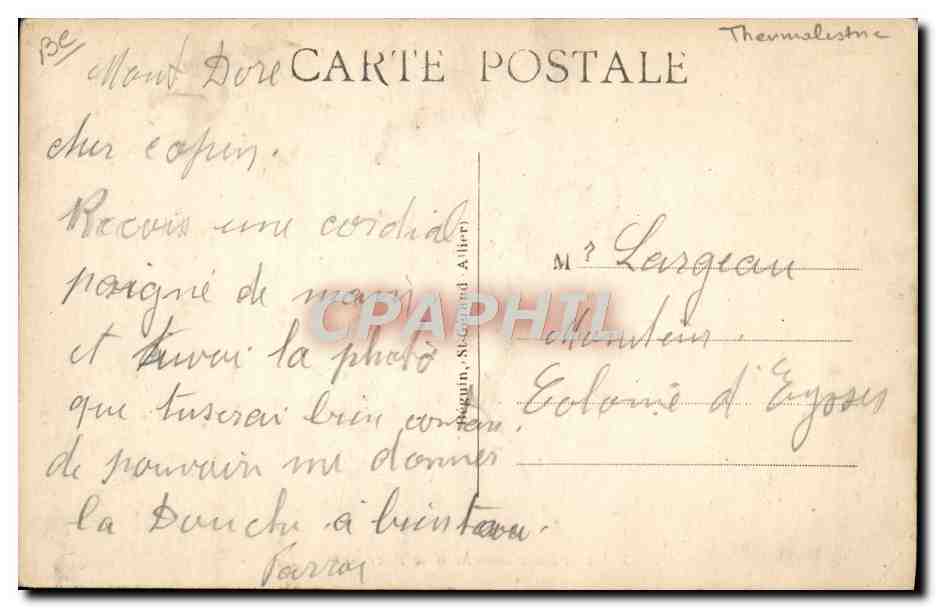 Be
Thermalisme
Mont Dore
CARTE POSTALE
cher copin.
Recois une cordial
poigné de main
et tuvoi la photo
que tuserai bien contan.
de pouvoir me donner
la Douche à bientau.
Béguin, St-Gérand - Allier)
Mr Largeau
Moniteur.
Colonie d'Eysses
CPAPHIL